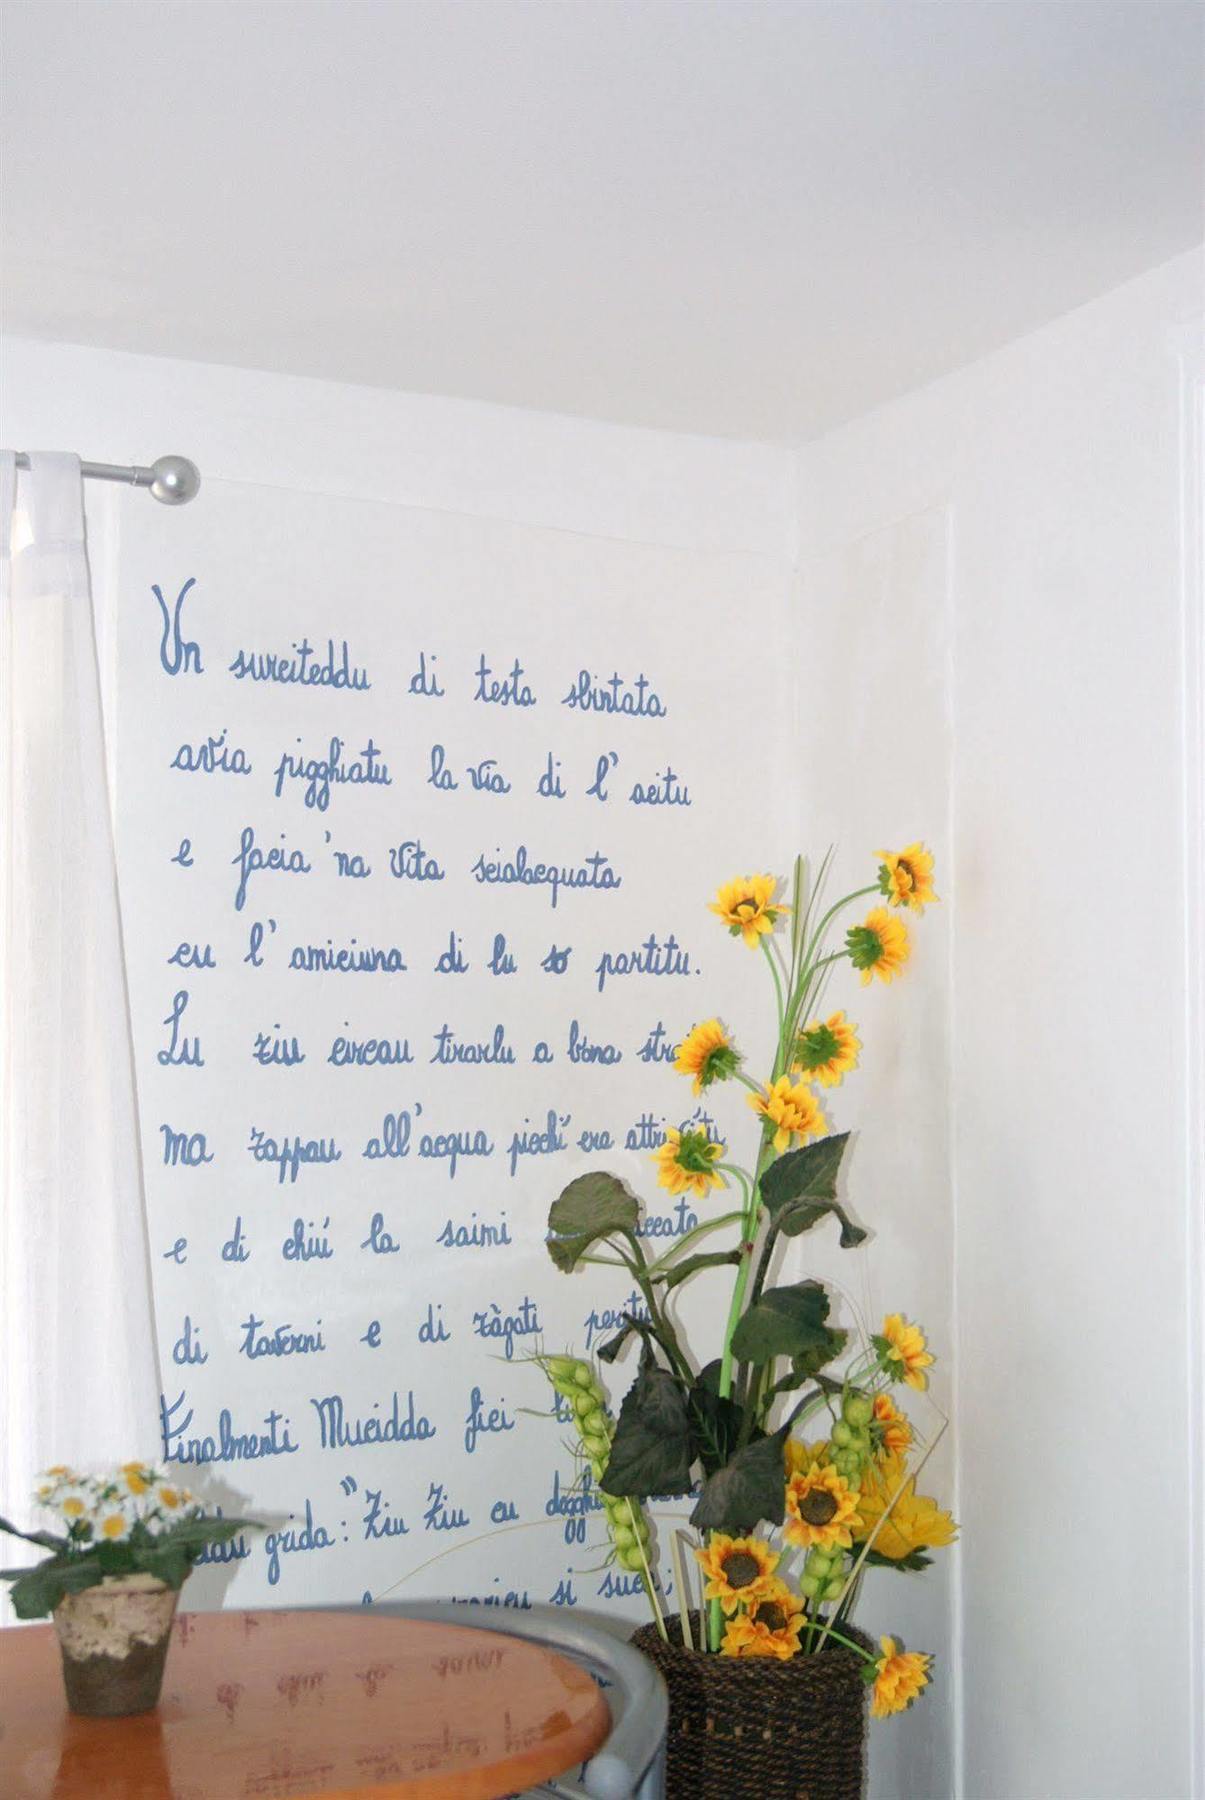 Un surciteddu di testa sbintata
avia pigghiatu la via di l'acitu
e facia 'na vita scialacquata
cu l'amiciuna di lu so partitu.
Lu ziu circau tirarlu a bona
ma zappau all'acqua picchì era
e di chiù la saimi
di taverni e di zàgati peritu
Finalmenti Mucidda fici
grida: "Ziu Ziu cu
si sucei;